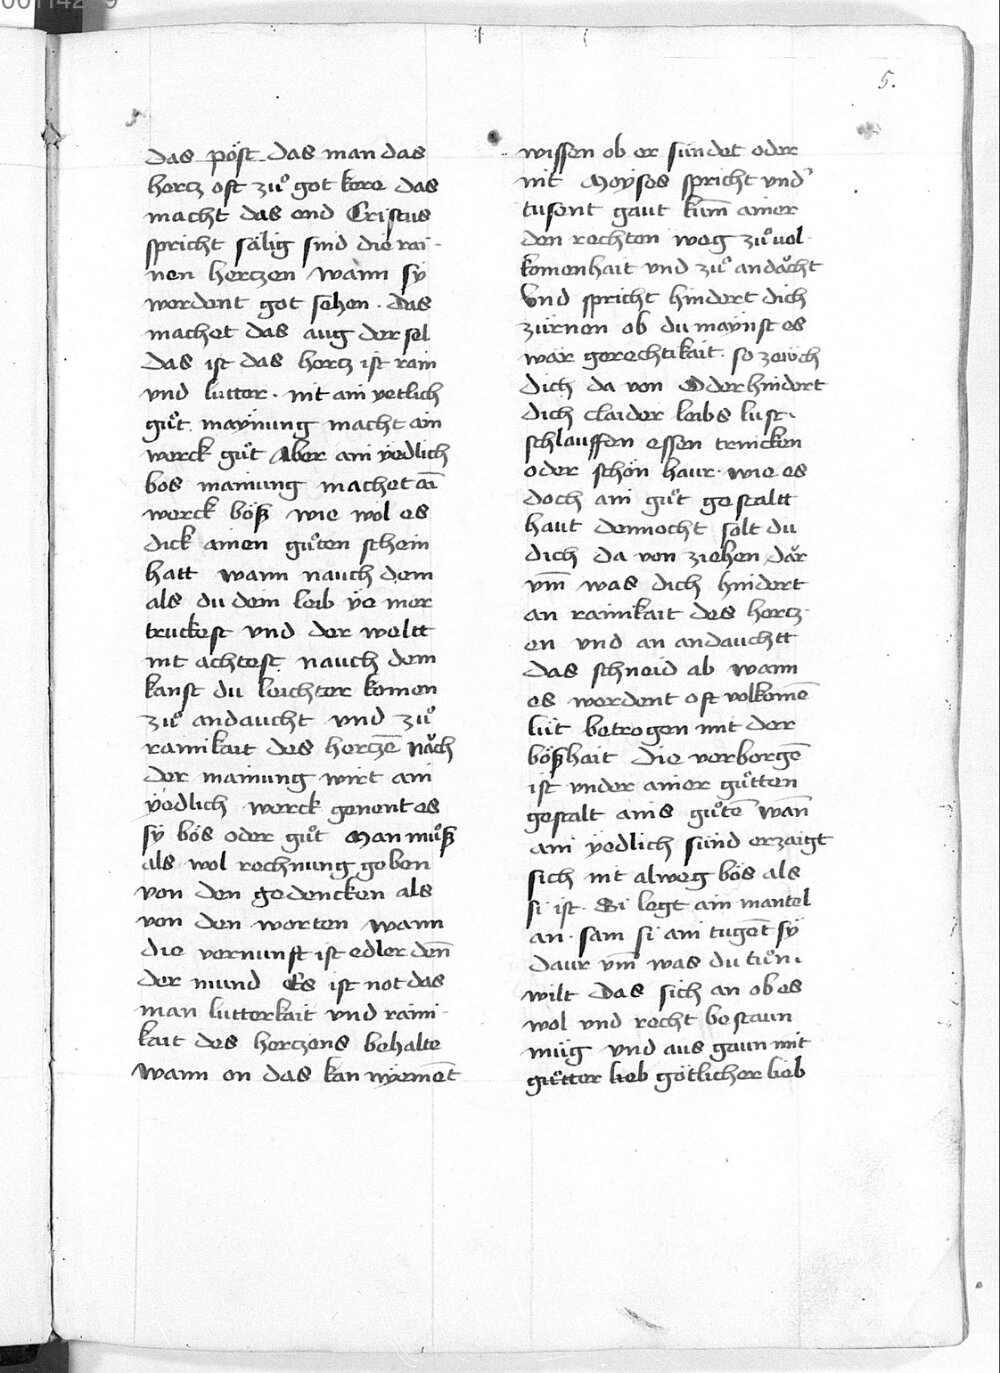 5.
das pöst das man das
hertz oft zuͦ got kere das
macht das end Cristus
spricht sälig sind die rai-
nen hertzen wann sÿ
werdent got sehen. das
machet das aug der sel
das ist das hertz ist rain
vnd lutter. nit ain yetlich
guͤt maÿnung macht ain
werck guͤt Aber ain ÿedlich
bos mainung machet aī
werck böß wie wol es
dick ainen guͦten schein
hatt wann nauch dem
als du dem leib ÿe mer
truckest vnd der weltt
nit achtest nauch dem
kanst du leichter komen
zuͦ andaucht vnd zuͦ
rainikait des hertzē nǎch
der mainung wirt ain
ÿedlich werck genent es
sÿ bös oder guͤt Man muͦß
als wol rechnung geben
von den gedencken als
von den worten wann
die vernunft ist edler den̄
der mund Es ist not das
man lutterkait vnd raini-
kait des hertzens behalte
wann on das kan nÿemēt
wissen ob er sündet oder
nit Moÿses spricht vnd
tusent gaut kum̄ ainer
den rechten weg zuͦ uol-
komenhait vnd zuͦ andǎcht
Vnd spricht hindert dich
zürnen ob du maÿnst es
wär gerechtikait. so zeüch
dich da von Oder hindert
dich claider leibs lust.
schlauffen essen trincken
oder schön haur. wie es
doch ain guͤt gestaltt
haut dennocht solt du
dich da von ziehen dǎr
vm̄ was dich hindert
an rainikait des hertz-
en vnd an andauchtt
das schneid ab wann
es werdent oft volkomē
lüt betrogen mit der
bößhait die verborgē
ist vnder ainer guͤtten
gestalt ains guͦtē wan̄
ain ÿedlich sünd erzaigt
sich nit alweg bös als
si ist. Si legt ain mantel
an. sam si ain tugēt sÿ
daur vm̄ was du tuͦn
wilt das sich an ob es
wol vnd recht bestaun
müg vnd aus gaun mit
guͤtter lieb götlicher lieb